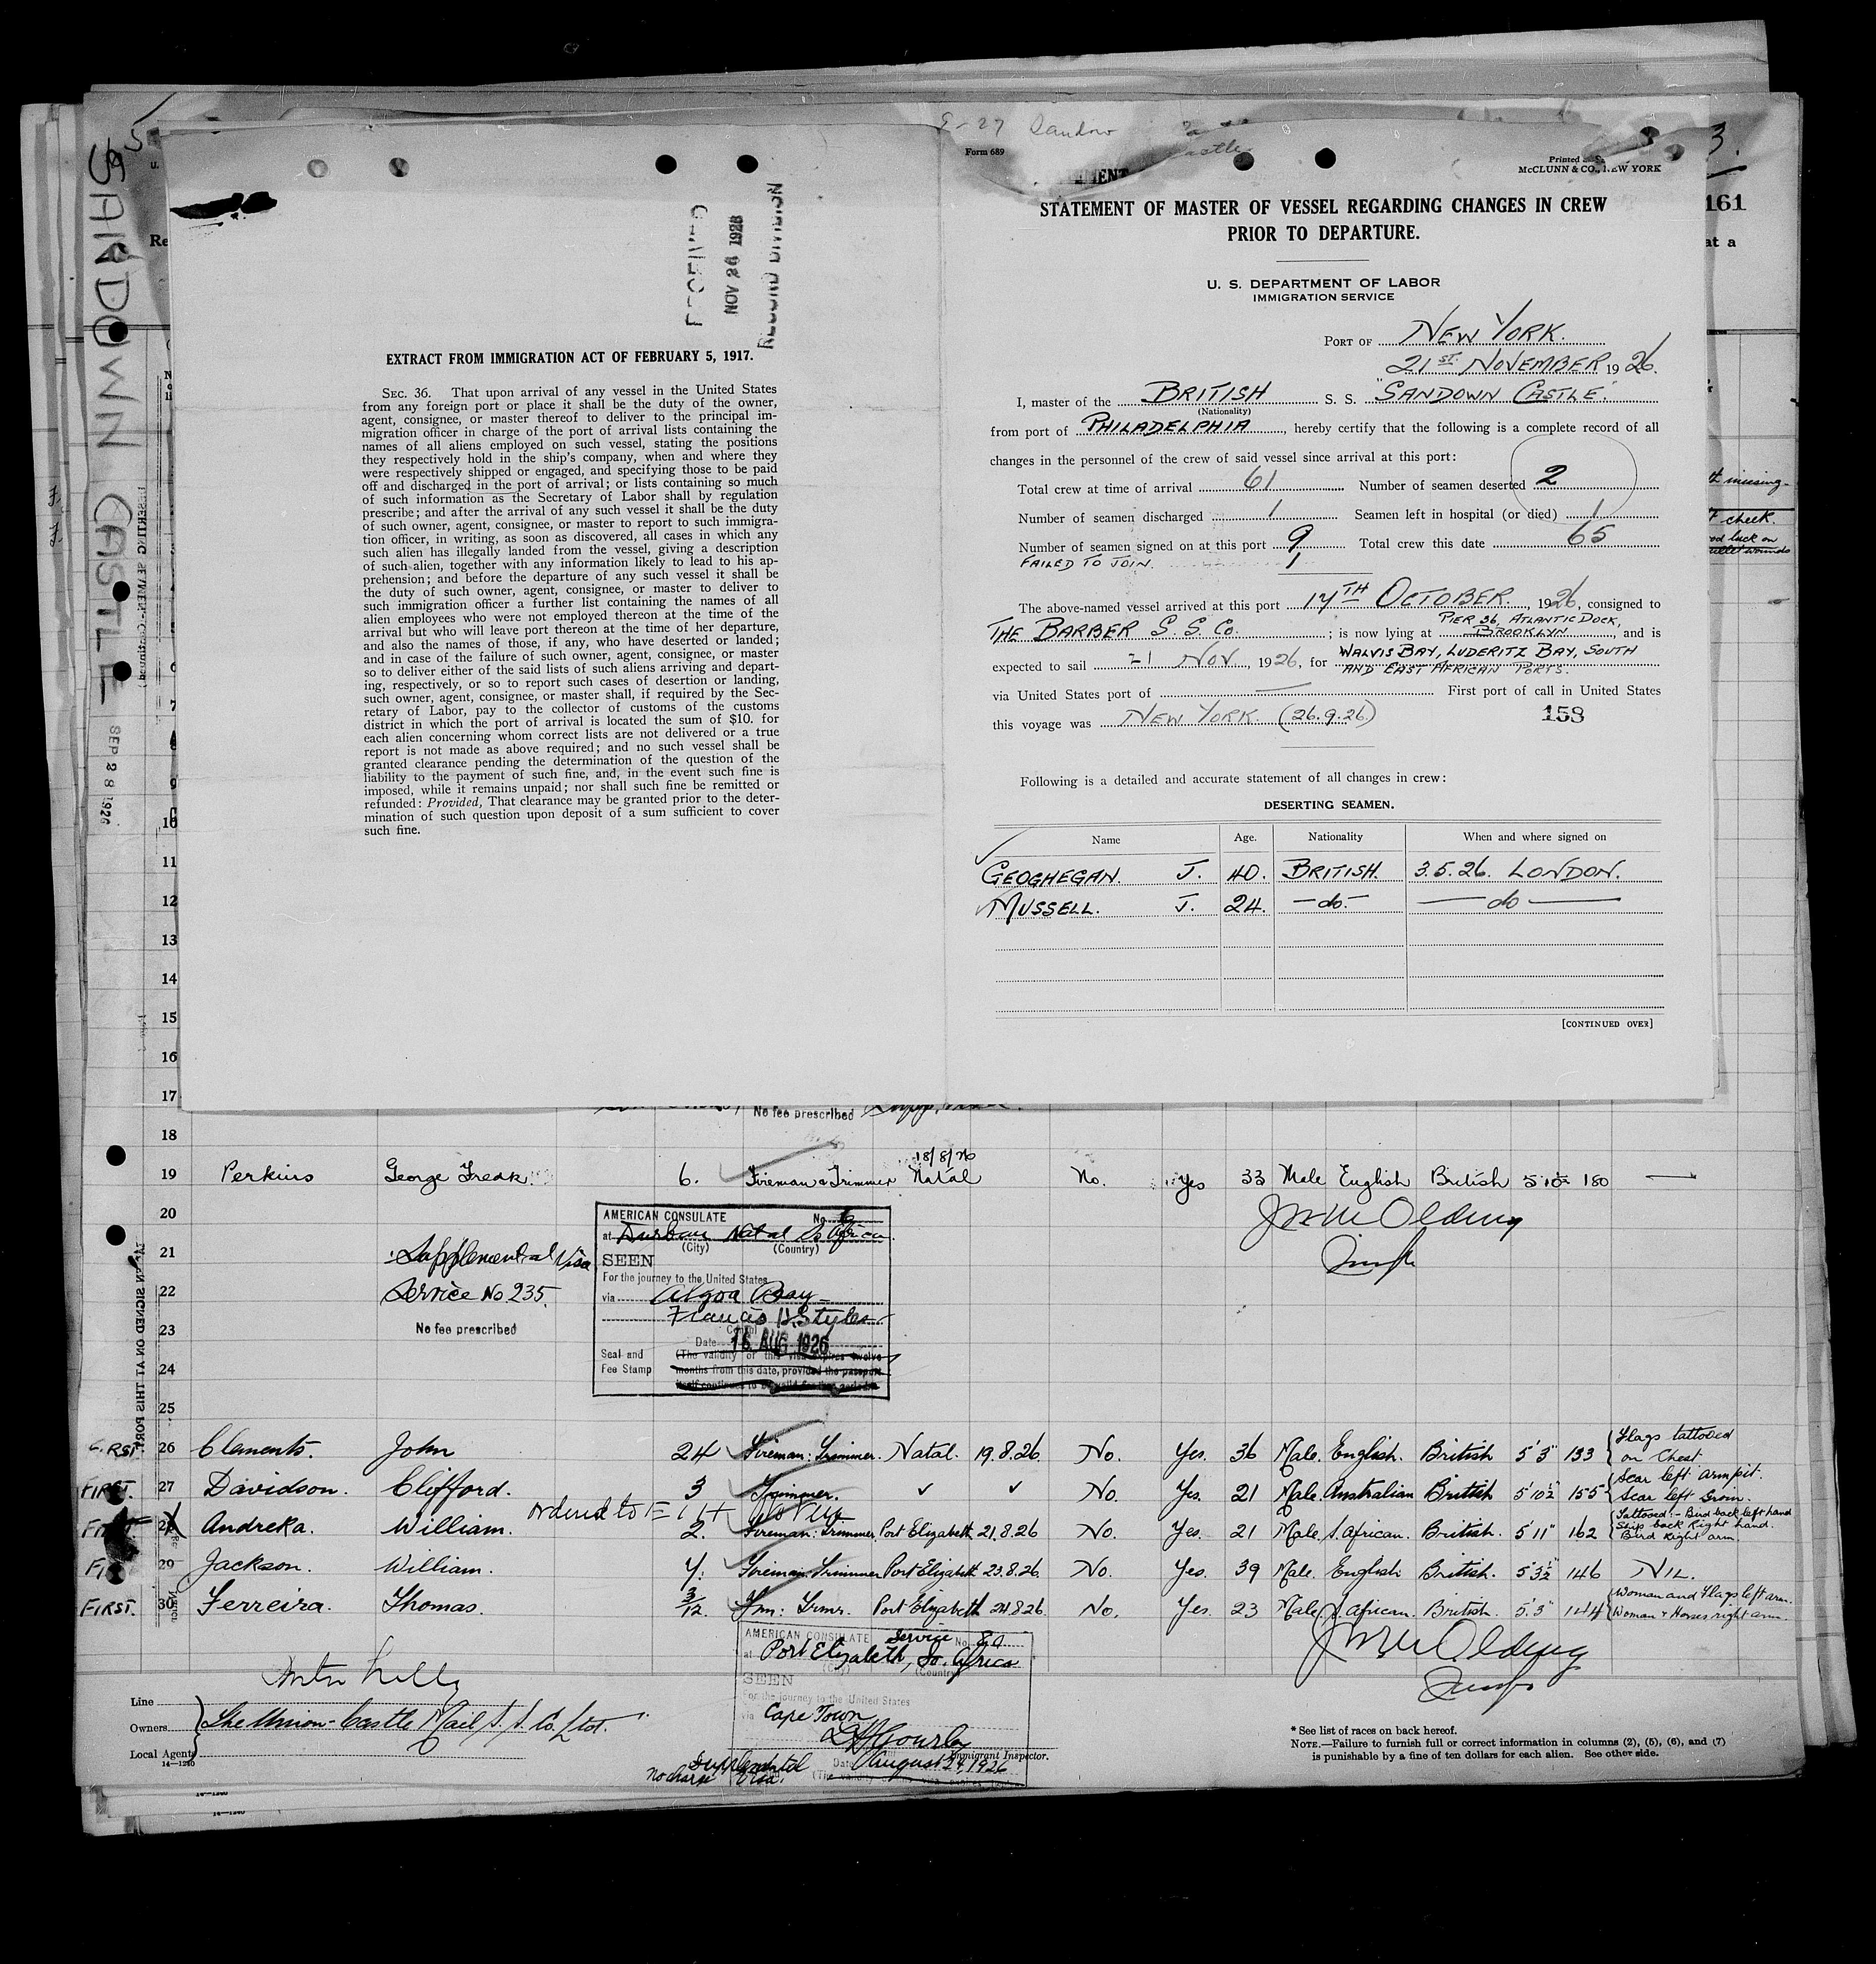 SANDOWN CASTLE
SEP 28 1926
RECEIVED
NOV 26 1926
RECORD DIVISION
EXTRACT FROM IMMIGRATION ACT OF FEBRUARY 5, 1917.
SEC. 36. That upon arrival of any vessel in the United States
from any foreign port or place it shall be the duty of the owner,
agent, consignee, or master thereof to deliver to the principal im-
migration officer in charge of the port of arrival lists containing the
names of all aliens employed on such vessel, stating the positions
they respectively hold in the ship's company, when and where they
were respectively shipped or engaged, and specifying those to be paid
off and discharged in the port of arrival; or lists containing so much
of such information as the Secretary of Labor shall by regulation
prescribe; and after the arrival of any such vessel it shall be the duty
of such owner, agent, consignee, or master to report to such immigra-
tion officer, in writing, as soon as discovered, all cases in which any
such alien has illegally landed from the vessel, giving a description
of such alien, together with any information likely to lead to his ap-
prehension; and before the departure of any such vessel it shall be
the duty of such owner, agent, consignee, or master to deliver to
such immigration officer a further list containing the names of all
alien employees who were not employed thereon at the time of the
arrival but who will leave port thereon at the time of her departure,
and also the names of those, if any, who have deserted or landed;
and in case of the failure of such owner, agent, consignee, or master
so to deliver either of the said lists of such aliens arriving and depart-
ing, respectively, or so to report such cases of desertion or landing,
such owner, agent, consignee, or master shall, if required by the Sec-
retary of Labor, pay to the collector of customs of the customs
district in which the port of arrival is located the sum of $10. for
each alien concerning whom correct lists are not delivered or a true
report is not made as above required; and no such vessel shall be
granted clearance pending the determination of the question of the
liability to the payment of such fine, and, in the event such fine is
imposed, while it remains unpaid; nor shall such fine be remitted or
refunded: Provided, That clearance may be granted prior to the deter-
mination of such question upon deposit of a sum sufficient to cover
such fine.
Form 689
McCLUNN & CO., NEW YORK
3.
161
at a
STATEMENT OF MASTER OF VESSEL REGARDING CHANGES IN CREW
PRIOR TO DEPARTURE.
U. S. DEPARTMENT OF LABOR
IMMIGRATION SERVICE
PORT OF NEW YORK.
21ST NOVEMBER 1926.
I, master of the BRITISH S. S. "SANDOWN CASTLE"
(Nationality)
from port of PHILADELPHIA, hereby certify that the following is a complete record of all
changes in the personnel of the crew of said vessel since arrival at this port:
Total crew at time of arrival 61 Number of seamen deserted 2
Number of seamen discharged 1 Seamen left in hospital (or died) 1
Number of seamen signed on at this port 9 Total crew this date 65
FAILED TO JOIN. 1
The above-named vessel arrived at this port 17TH OCTOBER. 1926, consigned to
PIER 36, ATLANTIC DOCK,
THE BARBER S. S. Co. ; is now lying at BROOKLYN, and is
expected to sail 21 NOV, 1926, for WALVIS BAY, LUDERITZ BAY, SOUTH
AND EAST AFRICAN PORTS.
via United States port of First port of call in United States
this voyage was NEW YORK. (26.9.26) 158
Following is a detailed and accurate statement of all changes in crew:
DESERTING SEAMEN.
Name Age. Nationality When and where signed on
GEOGHEGAN. J. 40. BRITISH. 3.5.26. LONDON.
MUSSELL. J. 24. -do- -do-
[CONTINUED OVER]
10
11
12
13
14
15
16
17
No fee prescribed
18
18/8/26
19 Perkins George Fredk. 6. Fireman & Trimmer Natal No. Yes 33 Male English British 5'10½ 180 —
20
21
22
23
24
25
Supplemental Visa
Service No 235.
No fee prescribed
AMERICAN CONSULATE No.
at Durban Natal So Africa.
(City) (Country)
SEEN
For the journey to the United States
via Algoa Bay
Francis H. Styles
Date 16 AUG 1926
Seal and Fee Stamp
(The validity of this visa expires twelve
months from this date, provided the passport
itself continues to be valid for that period.)
FIRST 26 Clements. John 24 Fireman: Trimmer. Natal. 19.8.26. No. Yes. 36 Male. English. British 5'3" 133 Flags tattooed on Chest.
FIRST. 27 Davidson. Clifford. 3 Trimmer. ✓ ✓ No. Yes. 21 Male. Australian British 5'10½ 155 Scar left armpit. Scar left Groin.
28 Andreka. William. 2. Fireman: Trimmer. Port Elizabeth 21.8.26 No. Yes. 21 Male S. African. British. 5'11" 162 Tattooed:- Bird back left hand Ship back Right hand. Bird Right arm.
29 Jackson. William. 7. Fireman Trimmer Port Elizabeth 23.8.26. No. Yes. 39 Male. English British. 5'3½ 146 NIL.
FIRST. 30 Ferreira. Thomas. 3/12. Fm: Trmr. Port Elizabeth 24.8.26. No. Yes. 23 Male S. African. British. 5'.3" 144 Woman and Flags left arm. Woman & Horses right arm.
AMERICAN CONSULATE Service No. 80
at Port Elizabeth, So. Africa
(Country)
SEEN
For the journey to the United States
via Cape Town
August 24, 1926
Supplemental Visa.
No charge
Line
Owners The Union-Castle Mail S. S. Co. Ltd.
Local Agents
14—1240
Immigrant Inspector.
* See list of races on back hereof.
NOTE.—Failure to furnish full or correct information in columns (2), (5), (6), and (7)
is punishable by a fine of ten dollars for each alien. See other side.